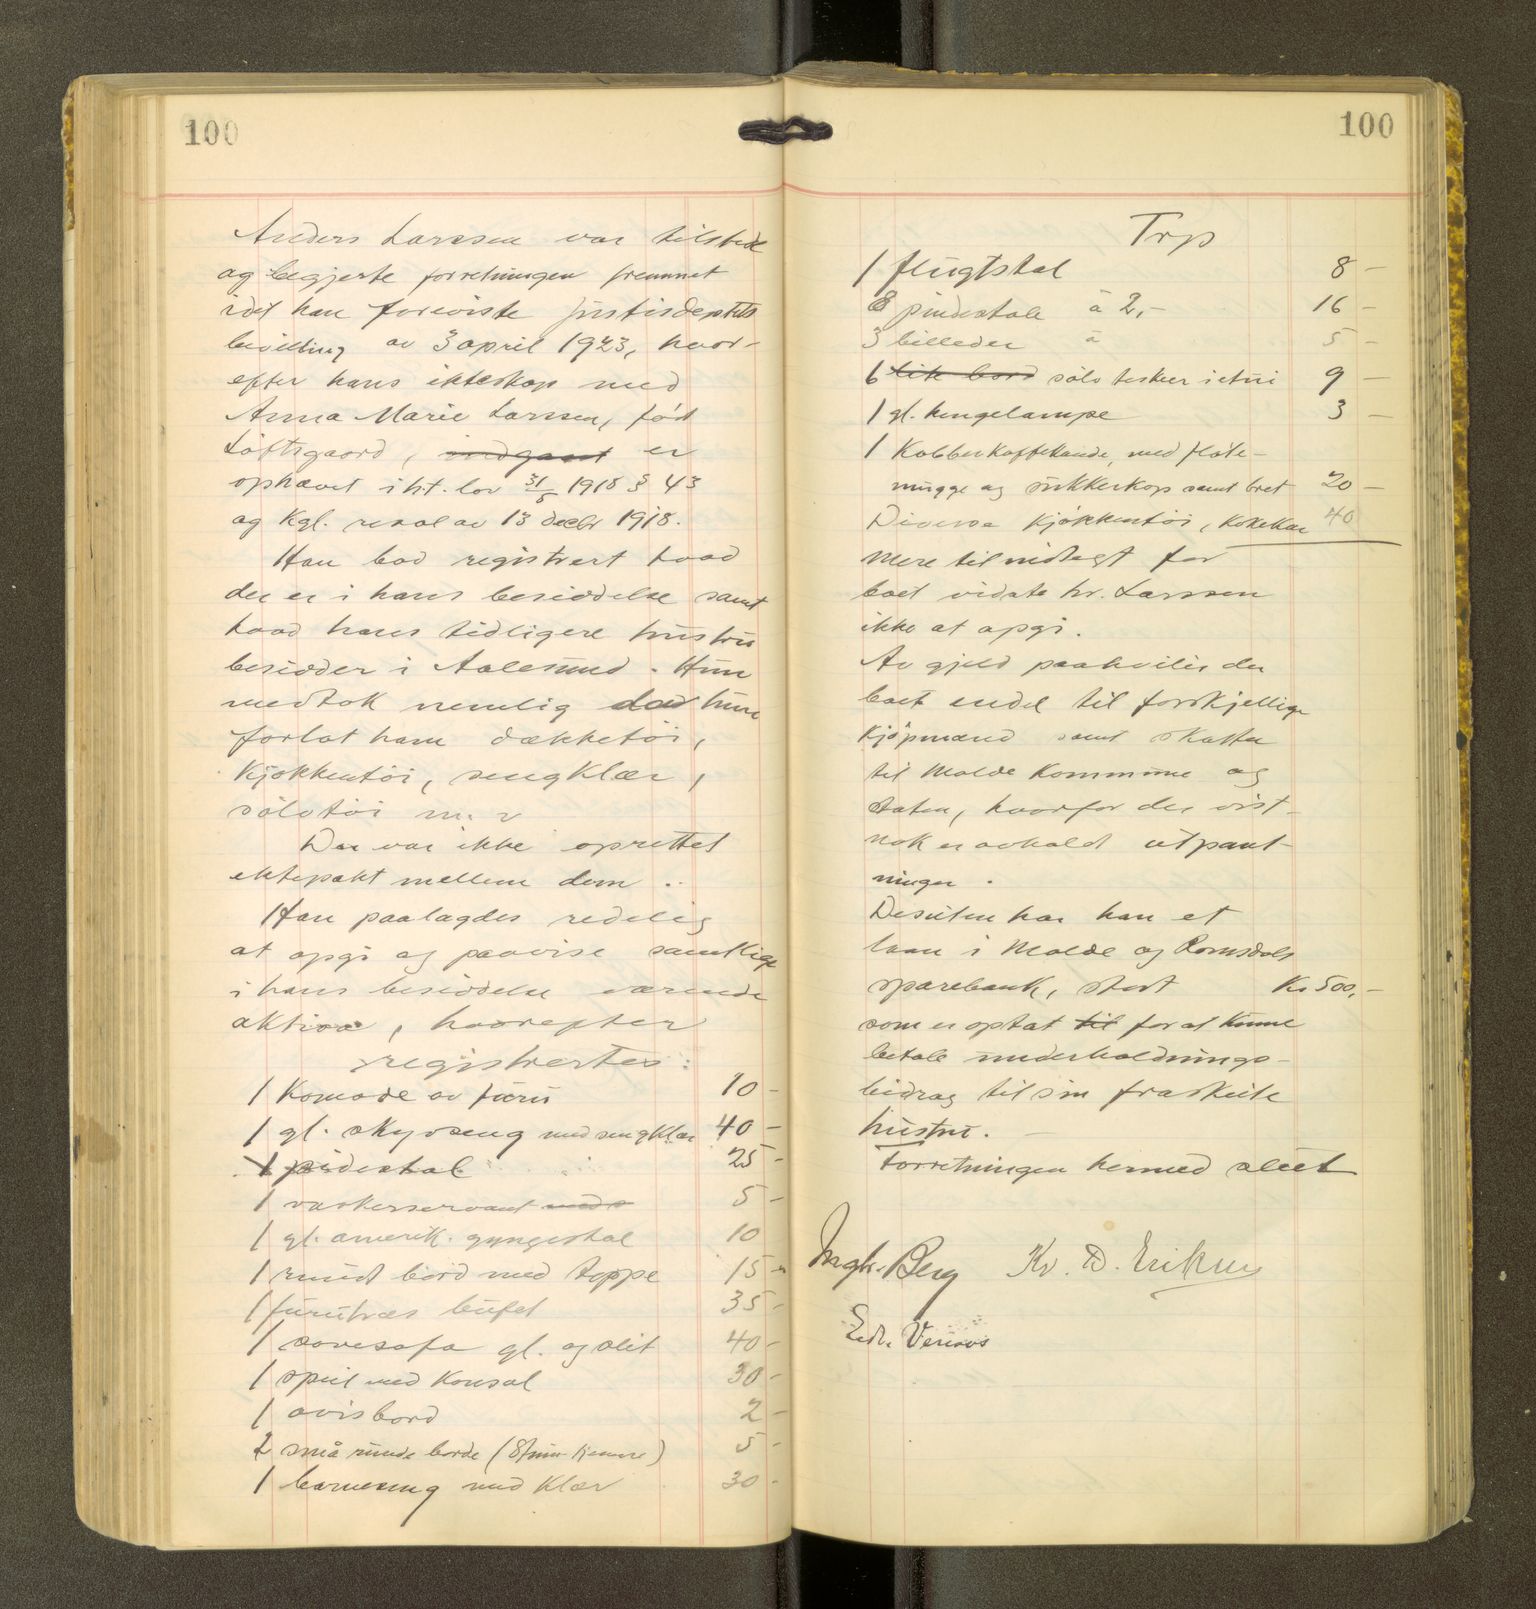 100
Anders Larssen var tilstede
og begjerte forretningen fremmet
idet han foreviste justisdeptets
bevilling av 3 april 1923, hvor-
efter hans ekteskap med
Anna Marie Larssen, født
Løftsgaard, indgaat er
ophævet i h.t. lov 31/5 1918 § 43
og Kgl. resol av 13 decbr 1918.
Han bad registrert hvad
der er i hans besiddelse samt
hvad hans tidligere hustru
besidder i Aalesund. Hun
medtok nemlig da hun
forlot ham dækketøi,
Kjøkkentøi, sengklær,
sølvtøi m. v
Der var ikke oprettet
ektepakt mellem dem.
Han paalagdes redelig
at opgi og paavise samtlige
i hans besiddelse værende
aktiva, hvorefter
registrertes:
1 Komode av furu 10 -
1 gl. skyvseng med sengklær 40 -
1 pidestal 25 -
1 vaskerservant med 5 -
1 gl. amerik. gyngestol 10
1 rundt bord med toppe 15 -
1 furutræs bufet 35 -
1 sovesofa gl. og slit 40 -
1 speil med Konsol 30 -
1 avisbord 2 -
2 små runde borde (8/mm hjemme) 5 -
1 barneseng med Klær 30 -
100
Trp
1 flugtstol 8 -
8 pindestole à 2,- 16 -
3 billeder à 5 -
6 lite bord sølv teskeer i etui 9 -
1 gl. hengelampe 3 -
1 Kobberkaffekande, med fløte-
mugge og sukkerkop samt bret 20 -
Diverse Kjøkkentøi, Kokekar 40
Mere tilindtegt for
boet vidste hr. Larssen
ikke at opgi.
Av gjeld paahviler der
boet endel til forskjellige
Kjøpmænd samt skatter
til Molde Kommune og
staten, hvorfor der vist-
nok er avholdt utpant-
ninger.
Desuten har han et
laan i Molde og Romsdals
sparebank, stort Kr 500,-
som er optat til for at Kunne
betale underholdnings-
bidrag til sin fraskilte
hustru. -
Forretningen hermed slut
Ingbr. Berg Kr. D. Eriksen
Edv.